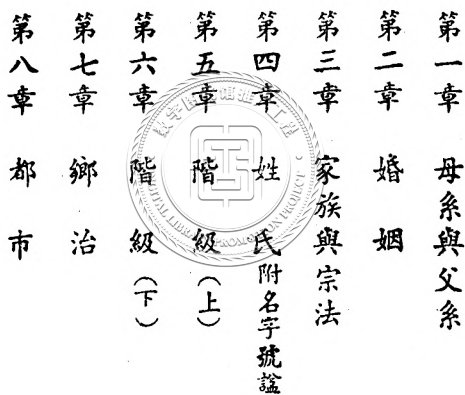 第一章 母系與父系
第二章 婚姻
第三章 家族與宗法
第四章 姓氏附名字號諡
第五章 階級(上)
第六章 階級(下)
第七章 鄉治
第八章 都市